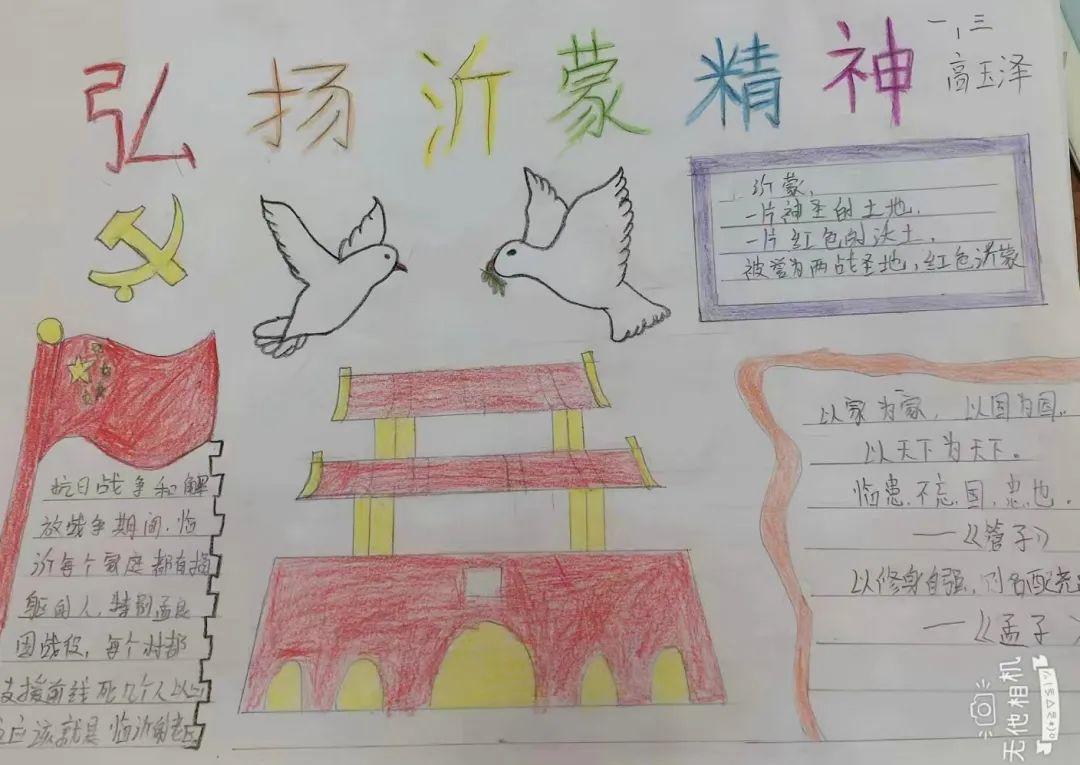 弘扬沂蒙精神
一,三
高玉泽
沂蒙,
一片神圣的土地,
一片红色的沃土,
被誉为两战圣地,红色沂蒙
以家为家, 以国为国..
以天下为天下。
临患.不忘.国.忠也.
——《管子》
以修身自强,则名配尧
——《孟子》
抗日战争和解
放战争期间.临
沂每个家庭都有捐
躯的人,特别孟良
固战役,每个村都
支援前线死几个人以
应该就是临沂
无他相机